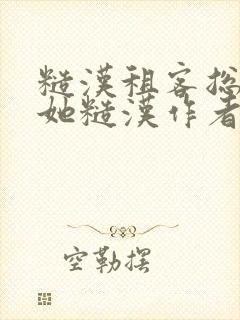 糙漢租客總
她糙漢作者
空勒摆